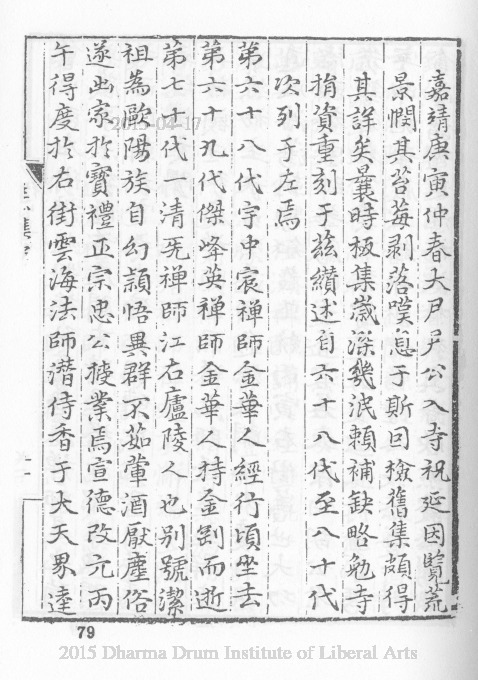 嘉靖庚寅仲春大尹尹公入寺祝延因覽荒
景憫其苔莓剥落嘆息于斯回檢舊集頗得
其詳矣曩時極集嵗深幾泯頼補缺略勉寺
捐資重刻于兹纉述自六十八代至八十代
次列于左焉
第六十八代宇中宸禪師金華人經行頃坐去
第六十九代傑峰英禪師金華人持金剛而逝
第七十代一清死禅師江右廬陵人也别號潔
祖為歐陽族自幻頴悟異群不茹葷酒厭塵俗
遂出家於寶禮正宗忠公授業焉宣德改元丙
午得度於右街雲海法師潜侍香于大天界達
79
2015-04-17
2015 Dharma Drum Institute of Liberal Arts